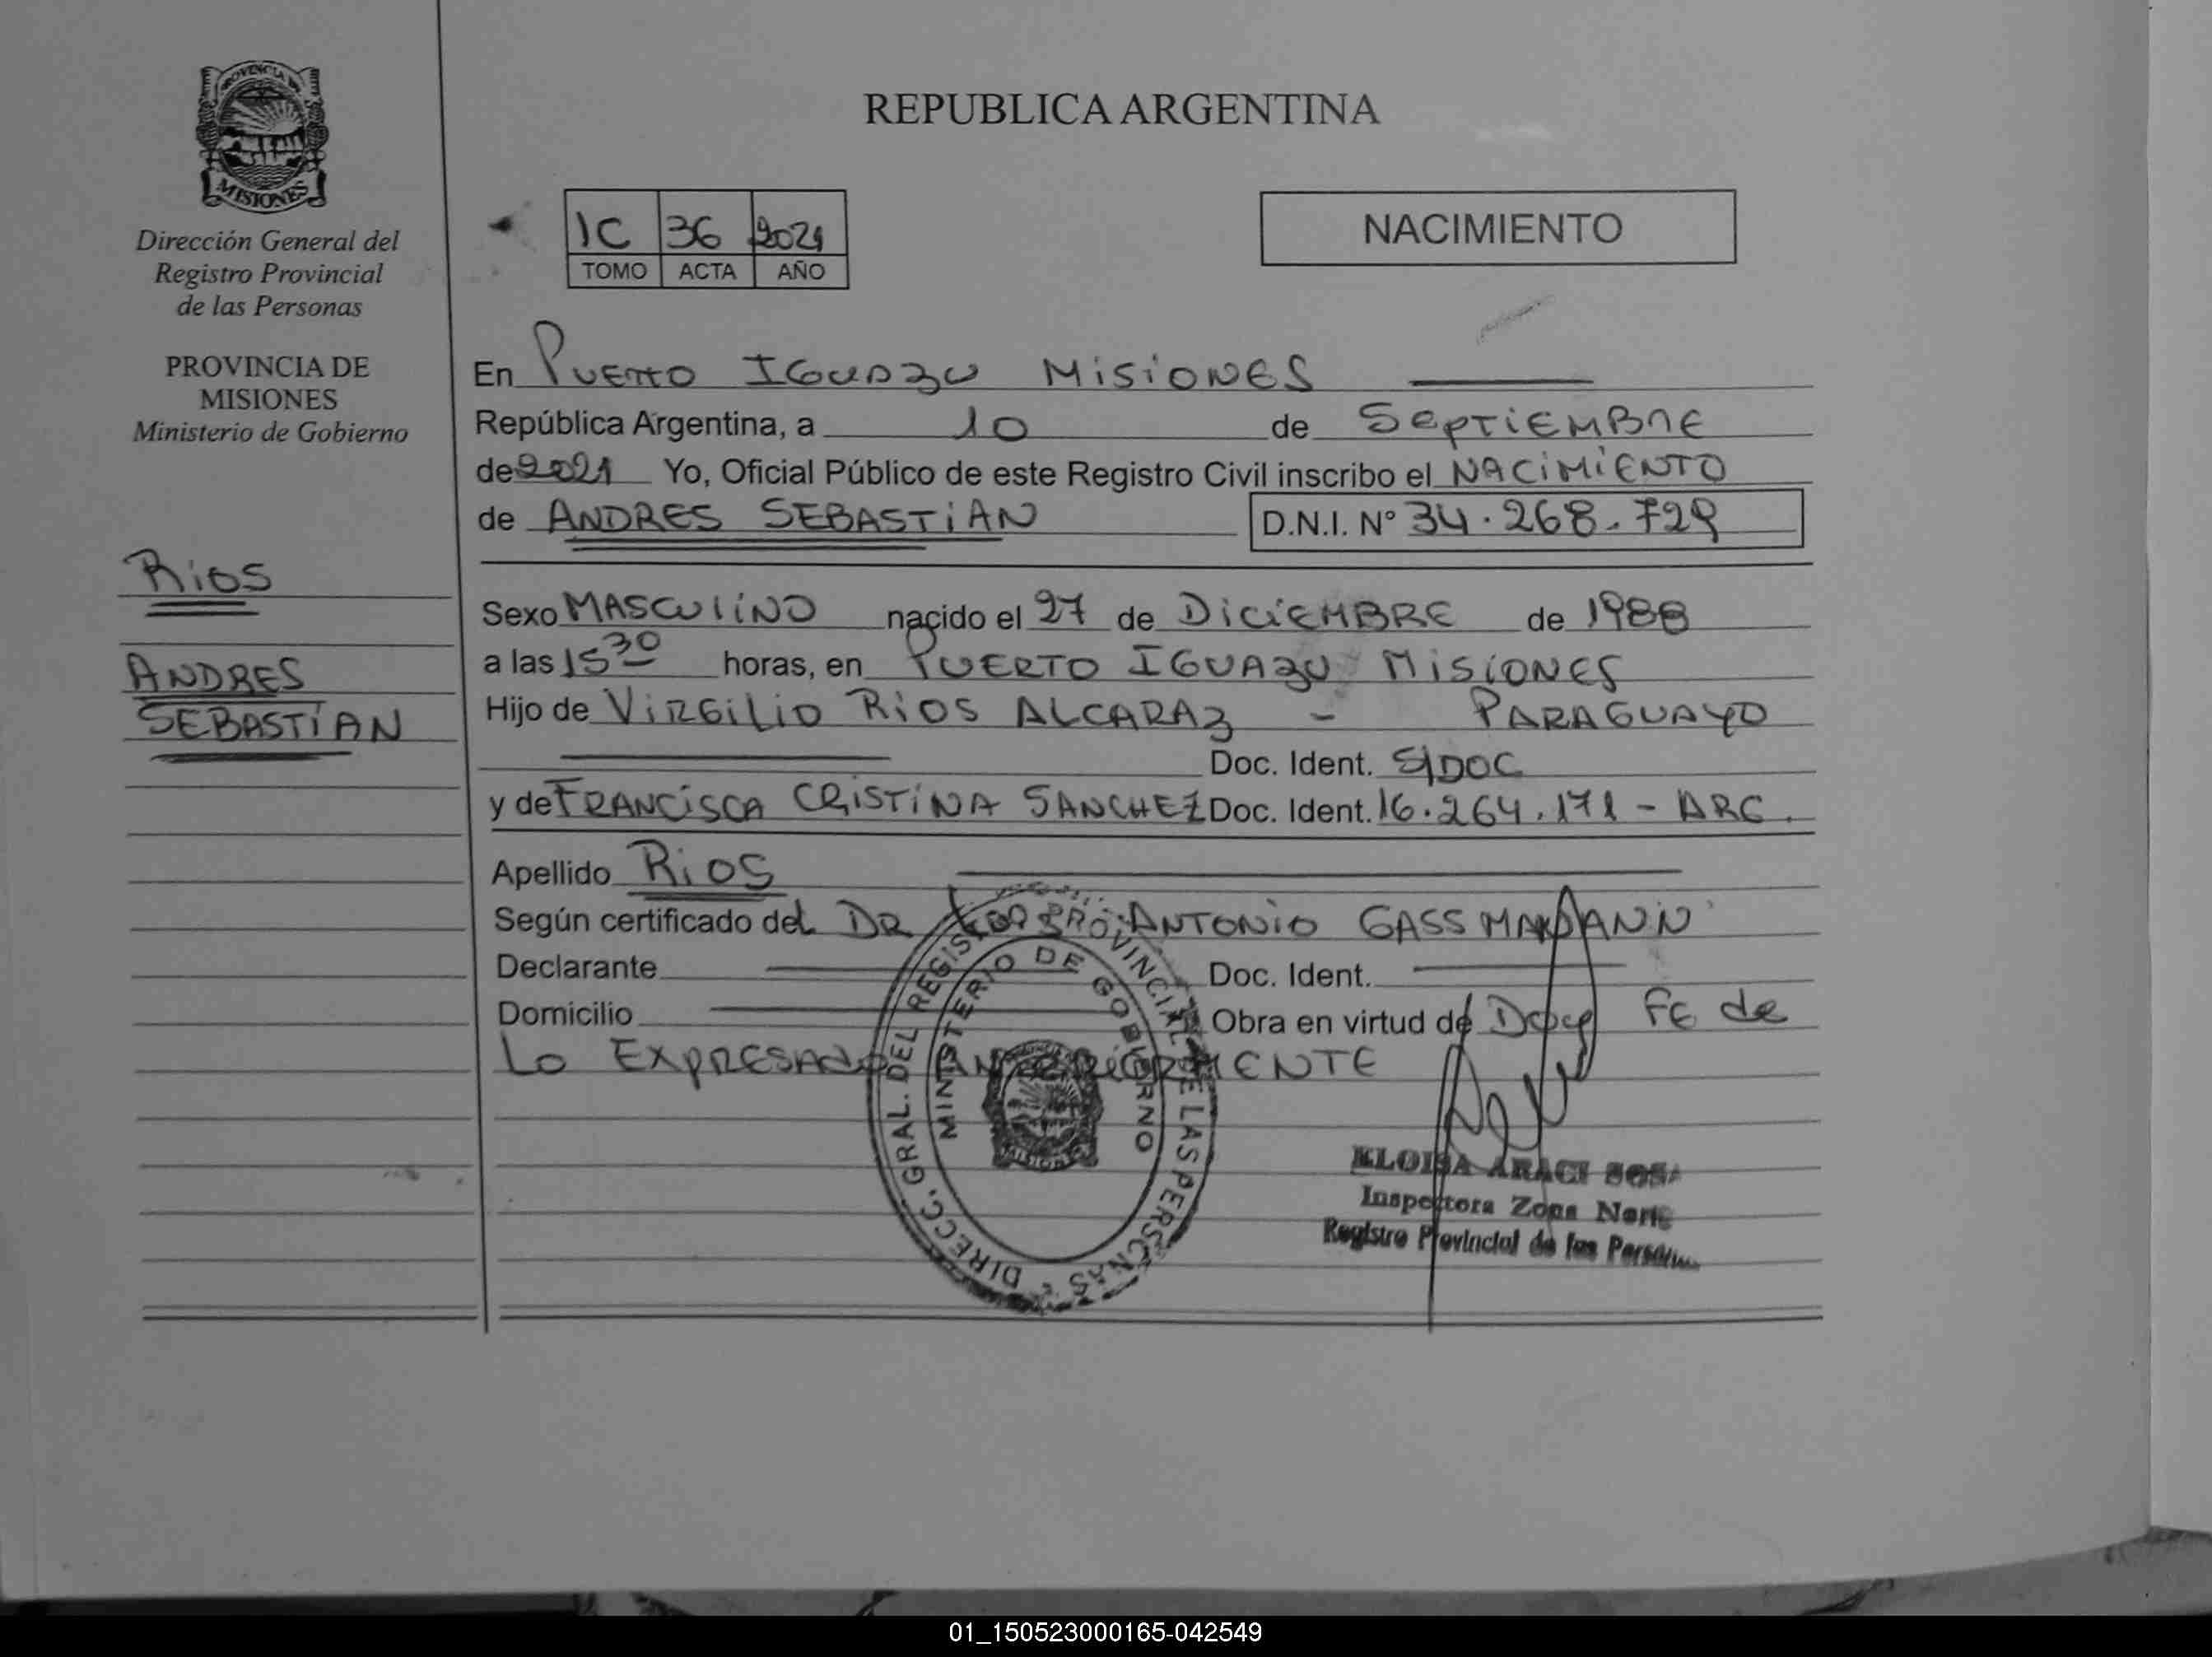 PROVINCIA DE
MISIONES
Dirección General del
Registro Provincial
de las Personas
PROVINCIA DE
MISIONES
Ministerio de Gobierno
Rios
ANDRES
SEBASTIAN
REPUBLICA ARGENTINA
1C 36 2021
TOMO ACTA AÑO
NACIMIENTO
En Puerto Iguazu Misiones
República Argentina, a 10 de Septiembre
de 2021 Yo, Oficial Público de este Registro Civil inscribo el NACIMIENTO
de ANDRES SEBASTIAN D.N.I. N° 34.268.729
Sexo MASCULINO nacido el 27 de DICIEMBRE de 1988
a las 15 30 horas, en PUERTO IGUAZU MISIONES
Hijo de VIRGILIO RIOS ALCARAZ - PARAGUAYO
Doc. Ident. S/DOC
y de FRANCISCA CRISTINA SANCHEZ Doc. Ident. 16.264.171 - ARG.
Apellido Rios
Según certificado del DR ANTONIO
Declarante Doc. Ident.
Domicilio Obra en virtud de Doy Fe de
Lo EXPRESADO ANTERIORMENTE
DIRECC. GRAL. DEL REGISTRO PROVINCIAL DE LAS PERSONAS
MINISTERIO DE GOBIERNO
MISIONES
ELOISA ARACI SOSA
Inspectora Zona Norte
Registro Provincial de las Personas
01_150523000165-042549